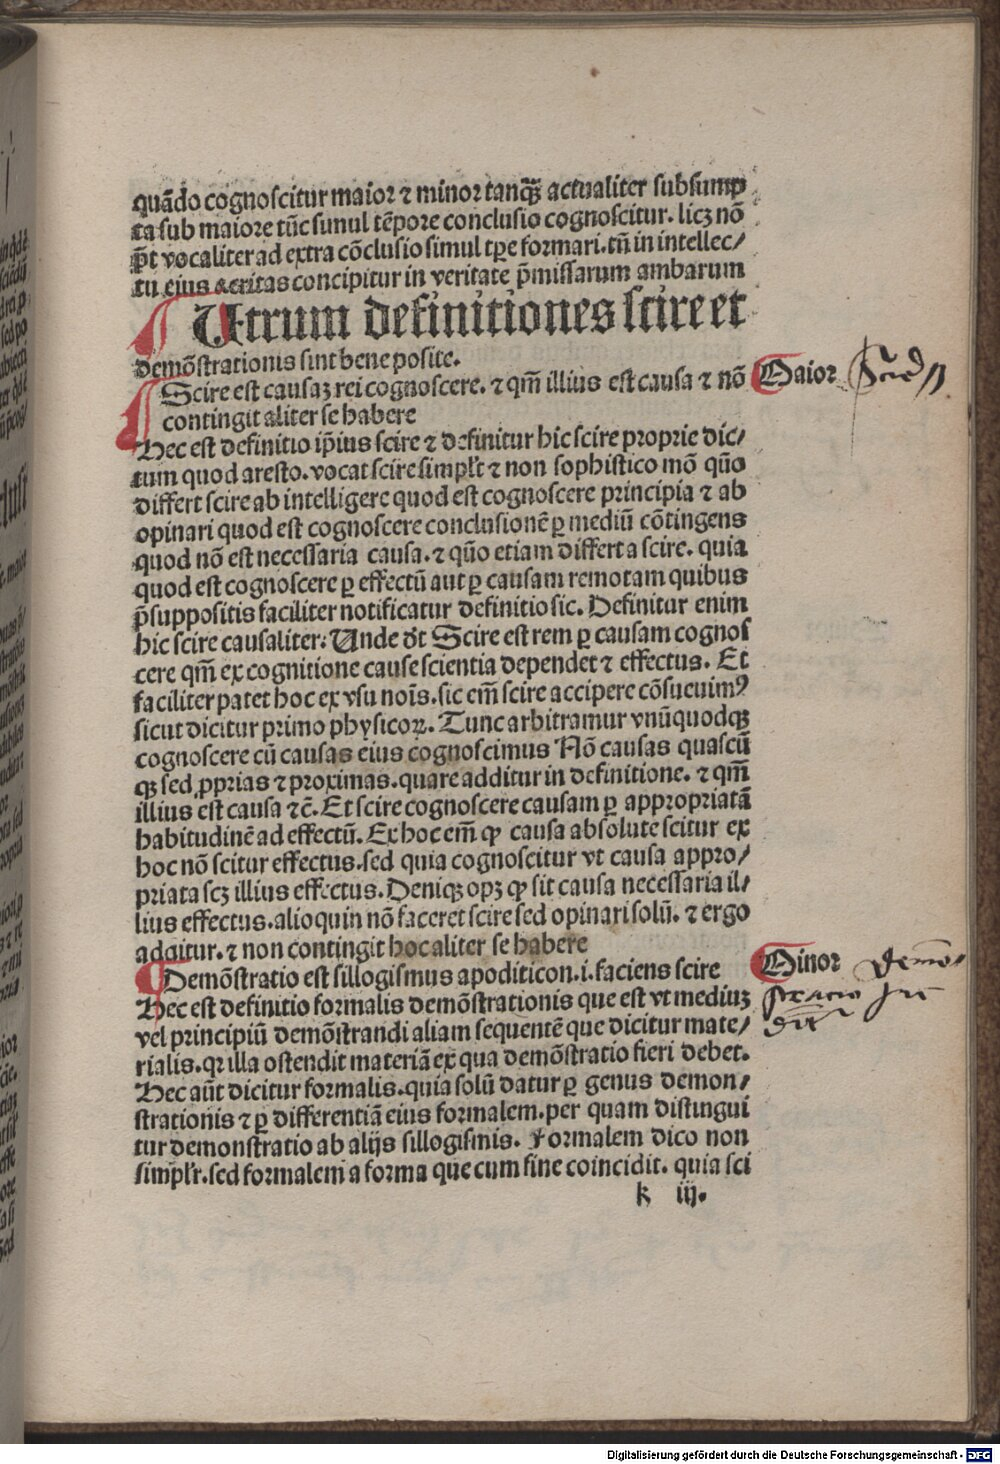 quādo cognoscitur maior ⁊ minor tanqꝫ actualiter subsump
ta sub maiore tūc simul tēpore conclusio cognoscitur. licꝫ nō
p̄t vocaliter ad extra cōclusio simul tꝑe formari. tñ in intellec/
tu eius veritas concipitur in veritate p̄missarum ambarum
Utrum definitiones scire et
demōstrationis sint bene posite.
Scire est causaꝫ rei cognoscere. ⁊ qm̄ illius est causa ⁊ nō
Maior Scire
contingit aliter se habere
Hec est definitio ip̄ius scire ⁊ definitur hic scire proprie dic/
tum quod aresto. vocat scire simpl'r ⁊ non sophistico mō quō
differt scire ab intelligere quod est cognoscere principia ⁊ ab
opinari quod est cognoscere conclusionē ꝑ mediū cōtingens
quod nō est necessaria causa. ⁊ quō etiam differt a scire. quia
quod est cognoscere ꝑ effectū aut ꝑ causam remotam quibus
p̄suppositis faciliter notificatur definitio sic. Definitur enim
hic scire causaliter: Unde dr̄ Scire est rem ꝑ causam cognos
cere qm̄ ex cognitione cause scientia dependet ⁊ effectus. Et
faciliter patet hoc ex vsu nois̄. sic em̄ scire accipere cōsueuimꝰ
sicut dicitur primo physicoꝝ. Tunc arbitramur vnūquodqꝫ
cognoscere cū causas eius cognoscimus Nō causas quascū
qꝫ sed ꝓprias ⁊ proximas. quare additur in definitione. ⁊ qm̄
illius est causa ⁊c̄. Et scire cognoscere causam ꝑ appropriatā
habitudinē ad effectū. Ex hoc em̄ ꝙ causa absolute scitur ex
hoc nō scitur effectus. sed quia cognoscitur vt causa appro/
priata scꝫ illius effectus. Deniqꝫ opꝫ ꝙ sit causa necessaria il/
lius effectus. alioquin nō faceret scire sed opinari solū. ⁊ ergo
additur. ⁊ non contingit hoc aliter se habere
Demōstratio est sillogismus apoditicon. i. faciens scire
Minor demō-
Hec est definitio formalis demōstrationis que est vt mediuꝫ
stracio
vel principiū demōstrandi aliam sequentē que dicitur mate/
rialis. qꝛ illa ostendit materiā ex qua demōstratio fieri debet.
Hec aūt dicitur formalis. quia solū datur ꝑ genus demon/
strationis ⁊ ꝑ differentiā eius formalem. per quam distingui
tur demonstratio ab alijs sillogismis. Formalem dico non
simpl'r. sed formalem a forma que cum fine coincidit. quia sci
k iij.
Digitalisierung gefördert durch die Deutsche Forschungsgemeinschaft - DFG